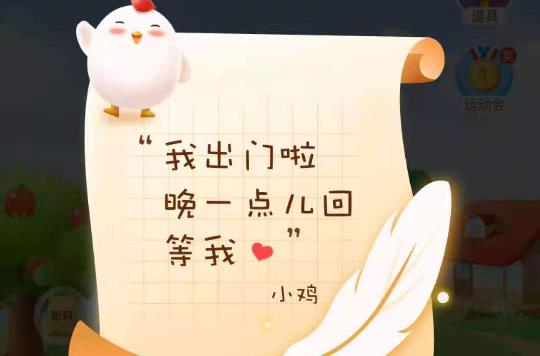 道具
奖
运动会
“我出门啦
晚一点儿回
等我”
小鸡
肥料